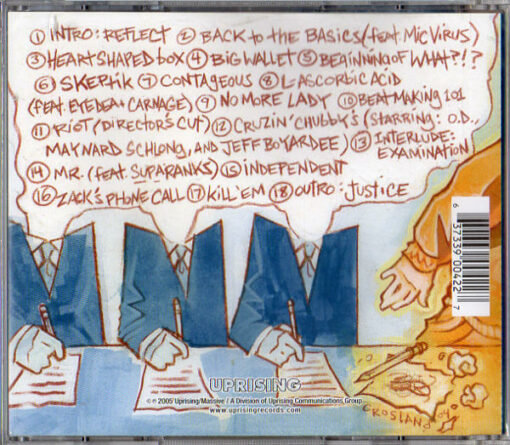 ① INTRO: REFLECT ② BACK TO THE BASICS (FEAT. MIC VIRUS)
③ HEART SHAPED BOX ④ BIG WALLET ⑤ BEGINNING OF WHAT?!?
⑥ SKEPTIK ⑦ CONTAGEOUS ⑧ L-ASCORBIC ACID
(FEAT. EYEDEA + CARNAGE) ⑨ NO MORE LADY ⑩ BEAT MAKING 101
⑪ RIOT (DIRECTOR'S CUT) ⑫ CRUZIN' CHUBBY'S (STARRING: O.D.,
MAYNARD SCHLONG, AND JEFF BOYARDEE) ⑬ INTERLUDE:
EXAMINATION
⑭ MR. (FEAT. SUPARANKS) ⑮ INDEPENDENT
⑯ ZACK'S PHONE CALL ⑰ KILL 'EM ⑱ OUTRO: JUSTICE
6 37339 00422 7
CROSLAND 04
UPRISING
© ℗ 2005 Uprising/Massive / A Division of Uprising Communications Group.
www.uprisingrecords.com